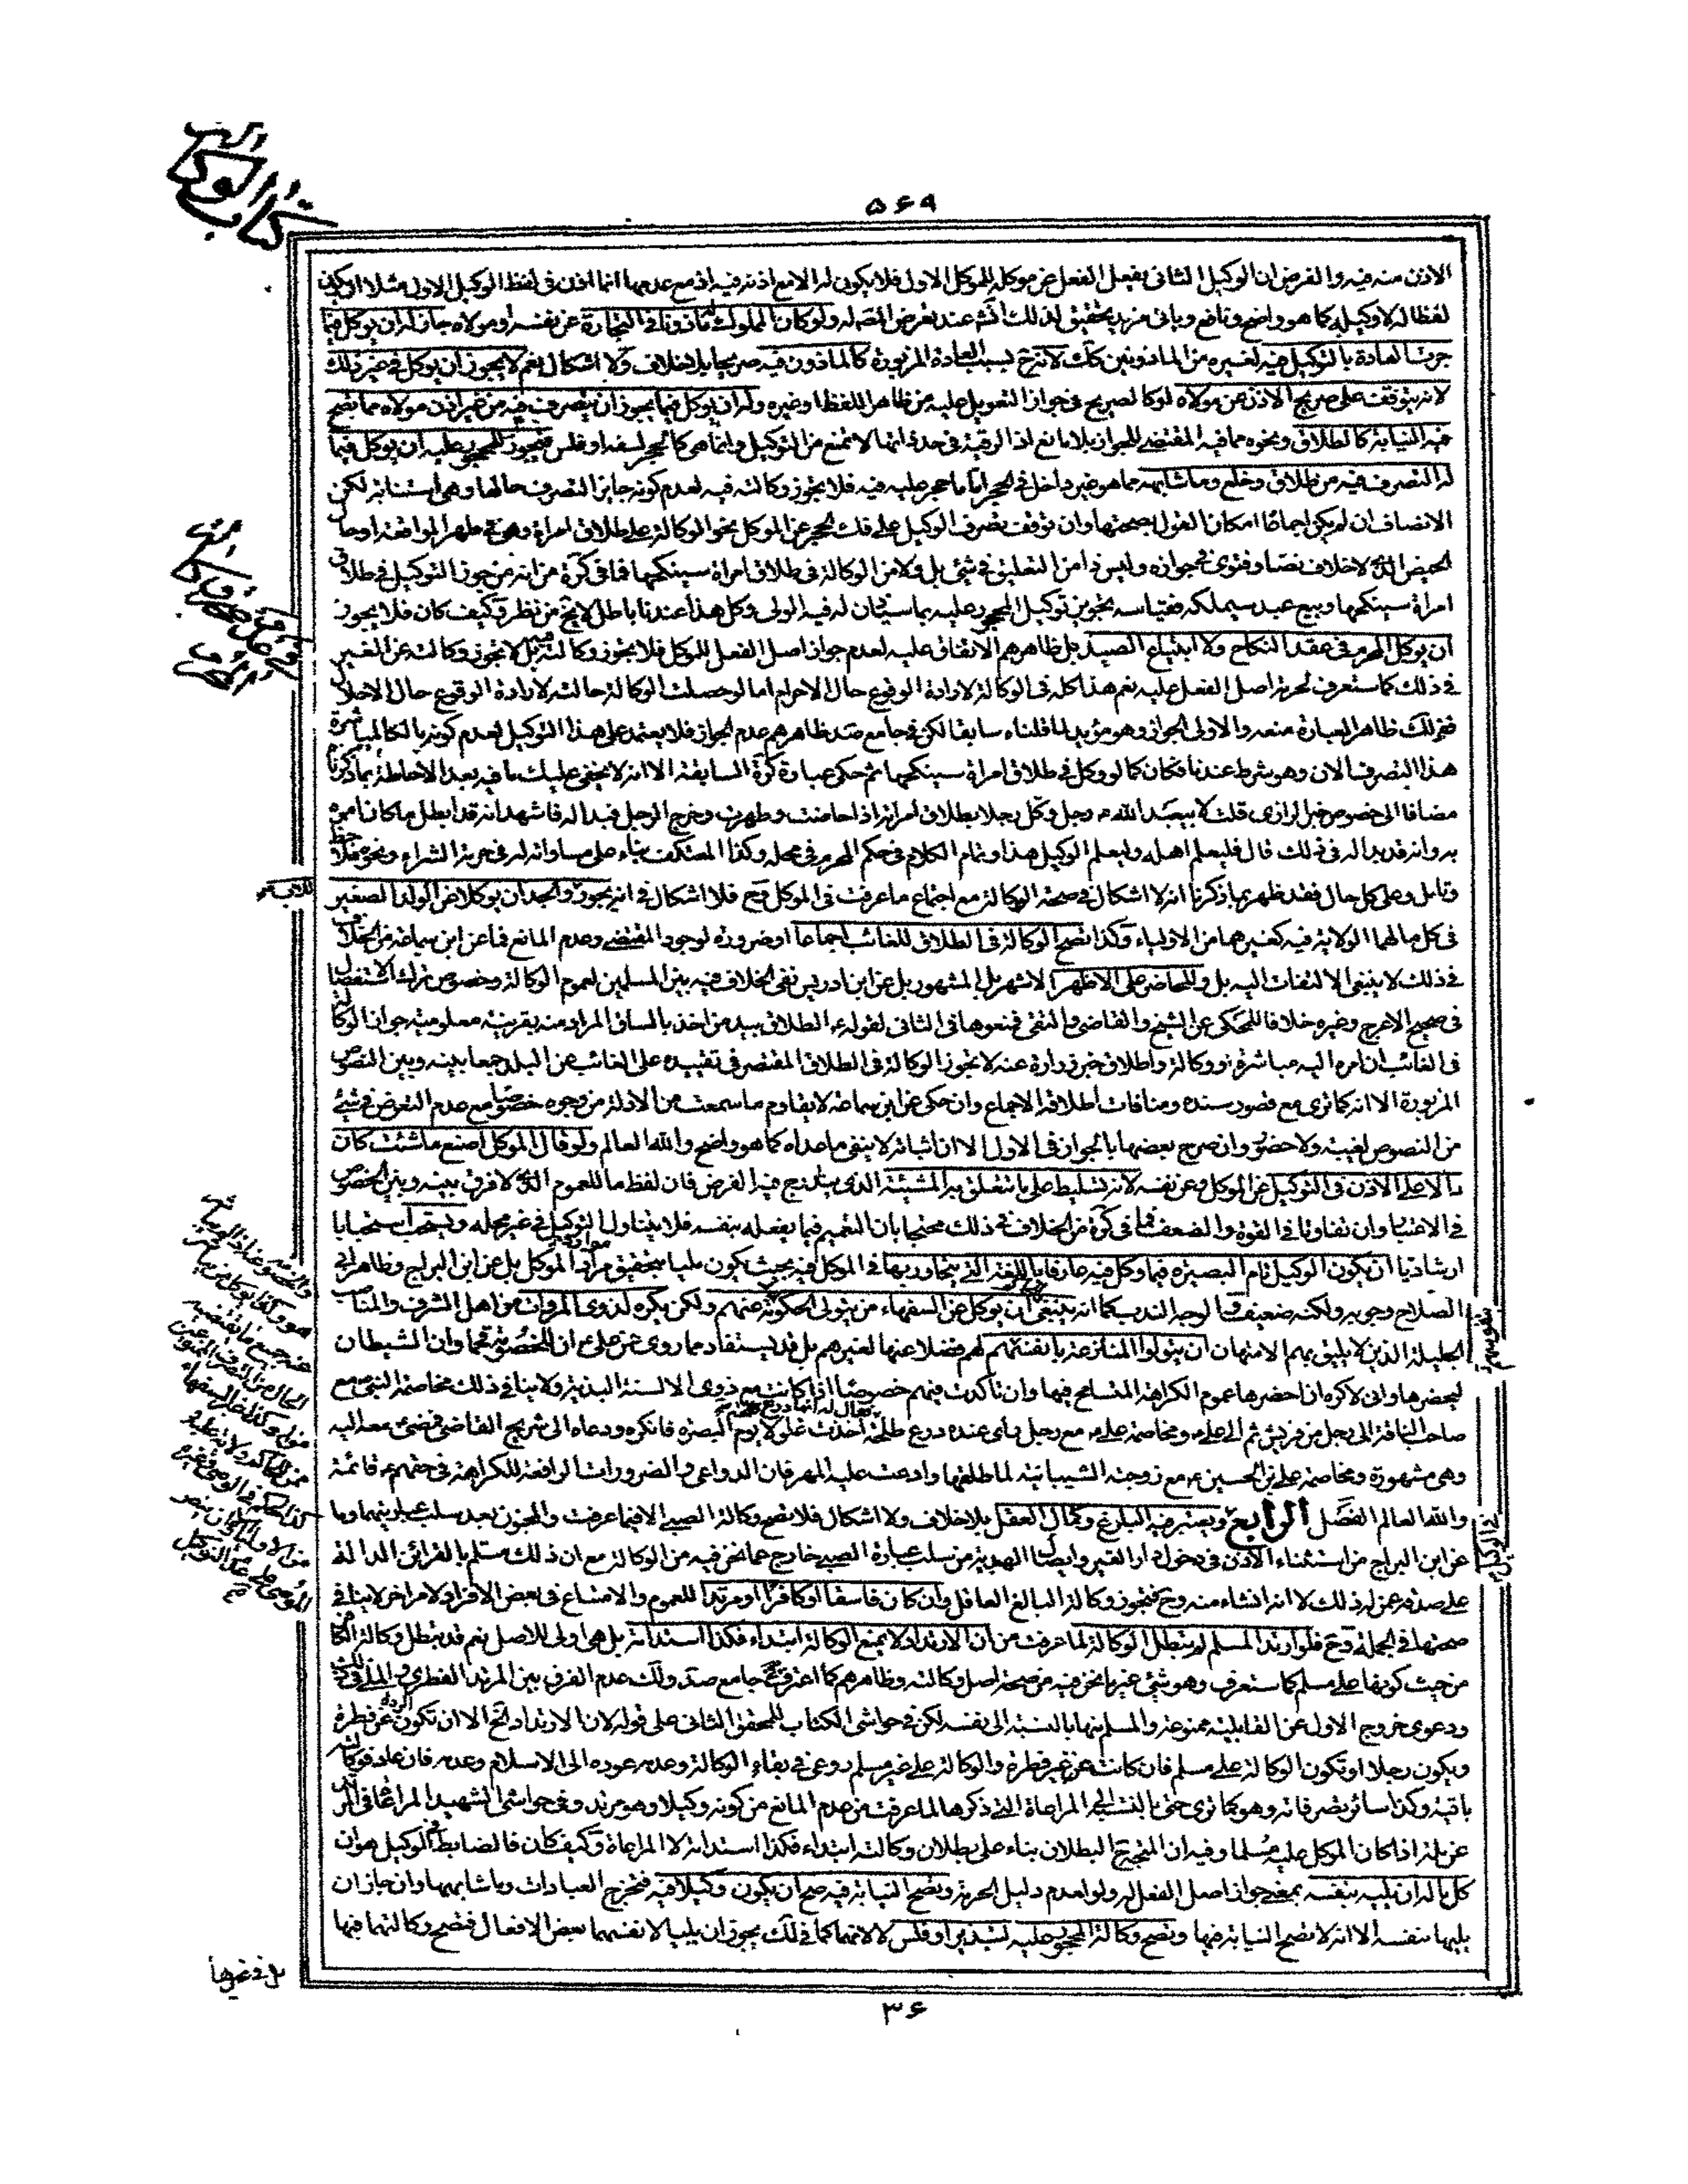 كتاب الوكالة
٥٦٩
الاذن منه فيه والفرض ان الوكيل الثانى يفعل الفعل عن موكله للموكل الاول فلا يكون له الا مع اذنه فيه اذ مع عدمها انما اذن فى لفظ الوكيل الاول مثلا ان يكون
لفظا له لا وكيله كما هو واضح ونافع وياتى مزيد تحقيق لذلك انش عند تعرض المصـ له ولو كان المملوك ماذونا فى التجارة عن نفسه او مولاه جاز له ان يوكل فيما
جرت العادة بالتوكيل فيه لغيره من الماذونين كك لاندرج بسبب العادة المزبورة كالماذون فيه صريحا بلا خلاف ولا اشكال نعم لا يجوز ان يوكل فى غير ذلك
لانه يتوقف على صريح الاذن من مولاه لو كا لصريح فى جواز التعويل عليه من ظاهر اللفظ او غيره وله ان يوكل فيما يجوز ان يتصرف فيه من غير اذن مولاه مما يصح
فيه النيابة كالطلاق ونحوه مما فيه المقتضى للجواز بلا مانع اذ الرقية فى حد ذاتها لا تمنع من التوكيل وانما هى كالحجر لسفه او فلس فيجوز للمحجور عليه ان يوكل فيما
له التصرف فيه من طلاق وخلع وما شابهه مما هو غير داخل فى الحجر اما ما حجر عليه فيه فلا يجوز وكالته فيه لعدم كونه جايز التصرف حالها وهى استنابة لكن
الانصاف ان لم يكن اجماعا امكان القول بصحتها وان توقف تصرف الوكيل على فك الحجر عن الموكل نحو الوكالة على طلاق امراة وهى فى طهر المواقعة او حال
الحيض الذى لا خلاف نصا وفتوى فى جوازه وليس ذا من التعليق فى شئ بل ولا من الوكالة فى طلاق امراة سينكحها فما فى كرة من انه من جوز التوكيل فى طلاق
امراة سينكحها وبيع عبد سيملكه فقياسه تجويز توكيل المحجور عليه بما سياذن له فيه الولى وكل هذا عندنا باطل لا يخ من نظر وكيف كان فلا يجوز
ان يوكل المحرم فى عقد النكاح ولا ابتياع الصيد بل ظاهرهم الاتفاق عليه لعدم جواز اصل الفعل للموكل فلا يجوز وكالته فيه بل لا تجوز وكالته عن الغير
فى ذلك كما ستعرف لحرمة اصل الفعل عليه نعم هذا كله فى الوكالة لارادة الوقوع حال الاحرام اما لو حصلت الوكالة حالته لارادة الوقوع حال الاحلال
فذلك ظاهر العبارة منعه والاولى الجواز وهو مؤيد لما قلناه سابقا لكن فى جامع صد ظاهرهم عدم الجواز فلا يعتمد على هذا التوكيل لعدم كونه مالكا لمباشرة
هذا التصرف الان وهو شرط عندنا فكان كما لو وكل فى طلاق امراة سينكحها ثم حكى عبارة كرة السابقة الا انه لا يخفى عليك ما فيه بعد الاحاطة بما ذكرنا
مضافا الى خصوص خبر الرازى قلت لابيعبد الله ع رجل وكل رجلا بطلاق امراته اذا حاضت وطهرت وخرج الرجل فبدا له فاشهد انه قد ابطل ما كان امره
به وانه قد بدا له فى ذلك قال فليعلم اهله وليعلم الوكيل هذا وتمام الكلام فى حكم المحرم فى محله وكذا المعتكف بناء على مساواته له فى حرمة الشراء ونحوه فلاحظ
وتامل وعلى كل حال فقد ظهر بما ذكرنا انه لا اشكال فى صحة الوكالة مع اجتماع ما عرفت فى الموكل وح فلا اشكال فى انه يجوز للاب والجد ان يوكلا عن الولد الصغير
فى كل ما لهما الولاية فيه كغيرهما من الاولياء وكذا تصح الوكالة فى الطلاق للغائب اجماعا او ضرورة لوجود المقتضى وعدم المانع فما عن ابن سماعة من الخلاف
فى ذلك لا ينبغى الالتفات اليه بل وللحاضر على الاظهر الاشهر بل المشهور بل عن ابن ادريس نفى الخلاف فيه بين المسلمين لعموم الوكالة وخصوص ترك الاستفصال
فى صحيح الاعرج وغيره خلافا للمحكى عن الشيخ والقاضى والتقى فمنعوها فى الثانى لقوله ع الطلاق بيد من اخذ بالساق المراد منه بقرينة معلومية جواز الوكالة
فى الغائب ان امره اليه مباشرة او وكالة واطلاق خبر زرارة عنه لا تجوز الوكالة فى الطلاق المقتصر فى تقييده على الغائب عن البلد جمعا بينه وبين النصوص
المزبورة الا انه كما ترى مع قصور سنده ومنافات اطلاقه الاجماع وان حكى عن ابن سماعة لا يقاوم ما سمعت من الادلة من وجوه خصوصا مع عدم التعرض فى شئ
من النصوص لغيبة ولا حضور وان صرح بعضها بالجواز فى الاول الا ان اثباته لا ينفى ما عداه كما هو واضح والله العالم ولو قال الموكل اصنع ما شئت كان
دالا على الاذن فى التوكيل عن الموكل وعن نفسه لانه تسليط على ما تتعلق به المشيئة الذى يندرج فيه الفرض فان لفظ ما للعموم الذى لا فرق بينه وبين الخصوص
فى الاعتبار وان تفاوتا فى القوة والضعف فما فى كرة من الخلاف فى ذلك محتجا بان التعميم فيما يفعله بنفسه فلا يتناول التوكيل فى غير محله ويستحب استحبابا
ارشاديا ان يكون الوكيل تام البصيرة فيما وكل فيه عارفا باللغة التى يتحاور بها فى الموكل فيه بحيث يكون مليا بتحقيق مراد الموكل بل عن ابن البراج وظاهر ابى
الصلاح وجوبه ولكنه ضعيف والوجه الندب كما انه ينبغى ان يوكل عن السفهاء من يتولى الحكومة عنهم ولكن يكره لذوى المروات من اهل الشرف والمناصب
الجليلة الذين لا يليق بهم الامتهان ان يتولوا المنازعة بانفسهم لهم فضلا عنها لغيرهم بل قد يستفاد مما روى عن على ع ان للخصومة قحما وان الشيطان
ليحضرها وانى لاكره ان احضرها عموم الكراهة المتسامح فيها وان تاكدت فيهم خصوصا اذا كانت مع ذوى الالسنة البذية ولا ينافى ذلك مخاصمة النبى ص مع
صاحب الناقة الى رجل من قريش ثم الى على ع ومخاصمة على ع مع رجل راى عنده درع طلحة فقال له انها درع طلحة اخذت غلولا يوم البصرة فانكره ودعاه الى شريح القاضى فمضى معه اليه
وهى مشهورة ومخاصمة على بن الحسين ع مع زوجته الشيبانية لما طلقها وادعت عليه المهر فان الدواعى والضرورات الرافعة للكراهة فى حقهم ع قائمة
والله العالم الفصل الرابع ويعتبر فيه البلوغ وكمال العقل بلا خلاف ولا اشكال فلا يصح وكالة الصبى الا فيما عرفت والمجنون بعد سلب عبارتهما وما
عن ابن البراج من استثناء الاذن فى دخول دار الغير وايصال الهدية من سلب عبارة الصبى خارج عما نحن فيه من الوكالة مع ان ذلك مسلم بالقرائن الدالة
على صدقه عن له ذلك لا انه انشاء منه وح فتجوز وكالة البالغ العاقل وان كان فاسقا او كافرا او مرتدا للعموم والامتناع فى بعض الافراد لامر اخر لا ينافى
صحتها فى الجملة وح فلو ارتد المسلم لم تبطل الوكالة لما عرفت من ان الارتداد لا يمنع الوكالة ابتداء فكذا استدامة بل هى اولى للاصل نعم قد تبطل وكالة الكافر
من حيث كونها على مسلم كما ستعرف وهو شئ غير ما نحن فيه من صحة اصل وكالته وظاهرهم كما اعترف به فى جامع صد ولك عدم الفرق بين المرتد الفطرى والملى فى ذلك
ودعوى خروج الاول عن القابلية ممنوعة والمسلم منها بالنسبة الى نفسه لكن فى حواشى الكتاب للمحقق الثانى على قوله لان الارتداد الخ الا ان تكون الردة عن فطرة
ويكون رجلا او تكون الوكالة على مسلم فان كانت عن غير فطرة والوكالة على غير مسلم روعى فى بقاء الوكالة وعدمه عوده الى الاسلام وعدمه فان عاد فوكالته
باقية وكذا سائر تصرفاته وهو كما ترى حتى بالنسبة الى المراعاة التى ذكرها لما عرفت من عدم المانع من كونه وكيلا وهو مرتد وفى حواشى الشهيد المراعاة فى المرتد
عن ملة اذا كان الموكل عليه مسلما وفيه ان المتجه ح البطلان بناء على بطلان وكالته ابتداء فكذا استدامة لا المراعاة وكيف كان فالضابط فى الوكيل هو ان
كل ما له ان يليه بنفسه بمعنى جواز اصل الفعل له ولو لعدم دليل الحرمة وتصح النيابة فيه صح ان يكون وكيلا فيه فتخرج العبادات وما شابهها وان جاز ان
يليها بنفسه الا انه لا تصح النيابة فيها وتصح وكالة المحجور عليه لتبذير او فلس لا لانهما كما فى لك يجوز ان يليا لانفسهما بعض الافعال فتصح وكالتهما فيها
بل وغيرها
٣٦